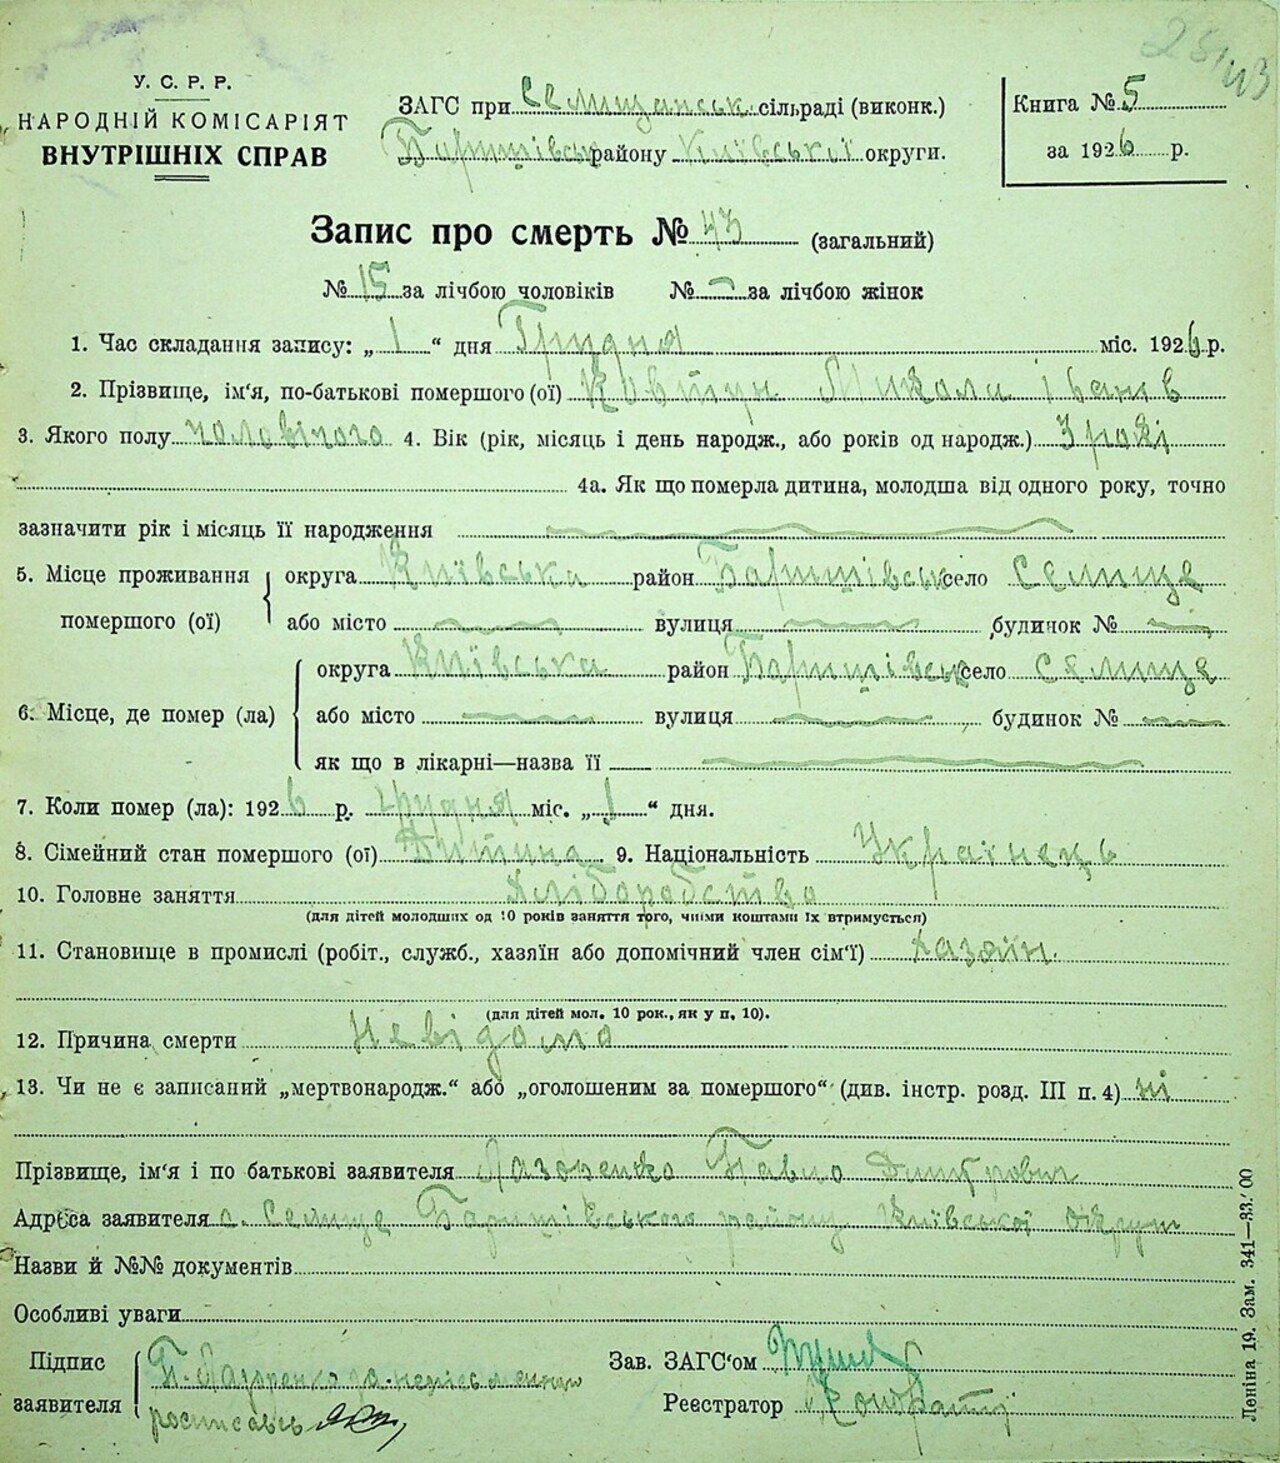 25/43
У. С. Р. Р.
НАРОДНІЙ КОМІСАРІЯТ
ВНУТРІШНІХ СПРАВ
ЗАГС при Семищанськ. сільраді (виконк.)
Баришівськ району Київської округи.
Книга № 5
за 1926 р.
Запис про смерть № 43 (загальний)
№ 15 за лічбою чоловіків № – за лічбою жінок
1. Час складання запису: „ 1 “ дня Грудня міс. 1926 р.
2. Прізвище, ім'я, по-батькові помершого (ої) Ковтун Микола Іванів
3. Якого полу чоловічого 4. Вік (рік, місяць і день народж., або років од народж.) 3 рокі
4а. Як що померла дитина, молодша від одного року, точно
зазначити рік і місяць її народження
5. Місце проживання помершого (ої) округа Київська район Баришівськ село Селище
або місто вулиця будинок №
6. Місце, де помер (ла) округа Київська район Баришівськ село Селище
або місто вулиця будинок №
як що в лікарні—назва її
7. Коли помер (ла): 1926 р. грудня міс. „ 1 “ дня.
8. Сімейний стан помершого (ої) Дитина 9. Національність Українець
10. Головне заняття Хліборобство
(для дітей молодших од 10 років заняття того, чиїми коштами їх втримується)
11. Становище в промислі (робіт., служб., хазяїн або допомічний член сім'ї) хазяїн.
(для дітей мол. 10 рок., як у п. 10).
12. Причина смерти Невідомо
13. Чи не є записаний „мертвонародж.“ або „оголошеним за помершого“ (див. інстр. розд. III п. 4) ні
Прізвище, ім'я і по батькові заявителя Лазоренко Павло Дмитрович
Адреса заявителя с. Селище Баришівського району Київської округи
Назви й №№ документів
Особливі уваги
Підпис заявителя П. Лазоренко за неписьменни
росписавсь
Зав. ЗАГС'ом
Реєстратор
Леніна 19. Зам. 341—33.'00